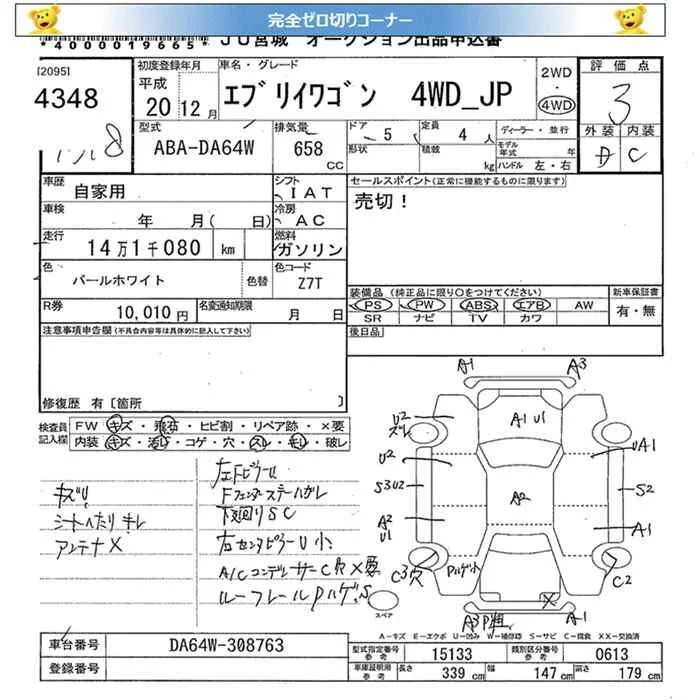 完全ゼロ切りコーナー
*4000019665* JU宮城 オークション出品申込書
[2095]
4348
初度登録年月
平成
20 12月
車名・グレード
エブリイワゴン 4WD_JP
2WD
・
4WD
評価点
3
外装 内装
D C
型式
ABA-DA64W
排気量
658
CC
ドア 5
形状
定員 4 人
積載 kg
ディーラー・並行
モデル年式 年
ハンドル 左・右
車歴
自家用
シフト
IAT
セールスポイント(正常に機能するものに限ります)
売切!
車検
年 月( 日)
冷房
AC
走行
14万1千080 km
燃料
ガソリン
色
パールホワイト
色替
色コード
Z7T
装備品(純正品に限り○をつけてください)
PS PW ABS エアB AW
SR ナビ TV カワ
新車保証書
有・無
R券
10,010円
名変通知期限
月 日
後日品
注意事項申告欄(不具合内容等は具体的に記入して下さい)
修復歴 有〔箇所 〕
検査員記入欄
FW キズ・飛石・ヒビ割・リペア跡・×要
内装 キズ・汚レ・コゲ・穴・スレ・キレ・破レ
キズU
シートヘたりキレ
アンテナX
左Fピラー U
Fフェンダーステーハガレ
下廻りSC
右センタピラーU小
A/Cコンデンサー C穴×要
ルーフレールPハゲ.S
A1
A3
U2
ズレ
A1 U1
U2
UA1
S3U2
A2
S2
A2
U1
A1
C3穴
Pハゲ小
C2
X
A3P粗
A1
スペア
A-キズ E-エクボ U-凹み W-補修跡 S-サビ C-腐食 XX-交換済
車台番号
DA64W-308763
登録番号
型式指定番号
参考
15133
類別区分番号
参考
0613
車庫証明用
参考
長さ 339 cm 幅 147 cm 高さ 179 cm